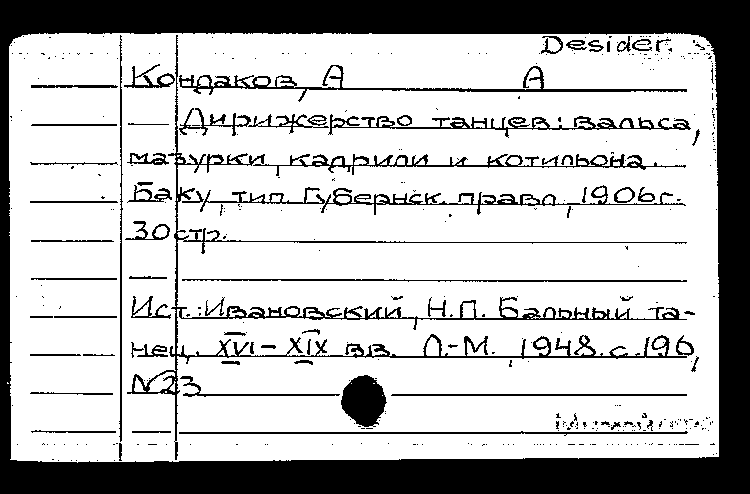 Desider.
Кондаков, А А
— Дирижерство танцев: вальса,
мазурки, кадрили и котильона.
Баку, тип. Губернск. правл, 1906г.
30 стр.
—
Ист.: Ивановский, Н.П. Бальный та-
нец. XVI – XIX вв. Л.-М., 1948. с. 190,
№23